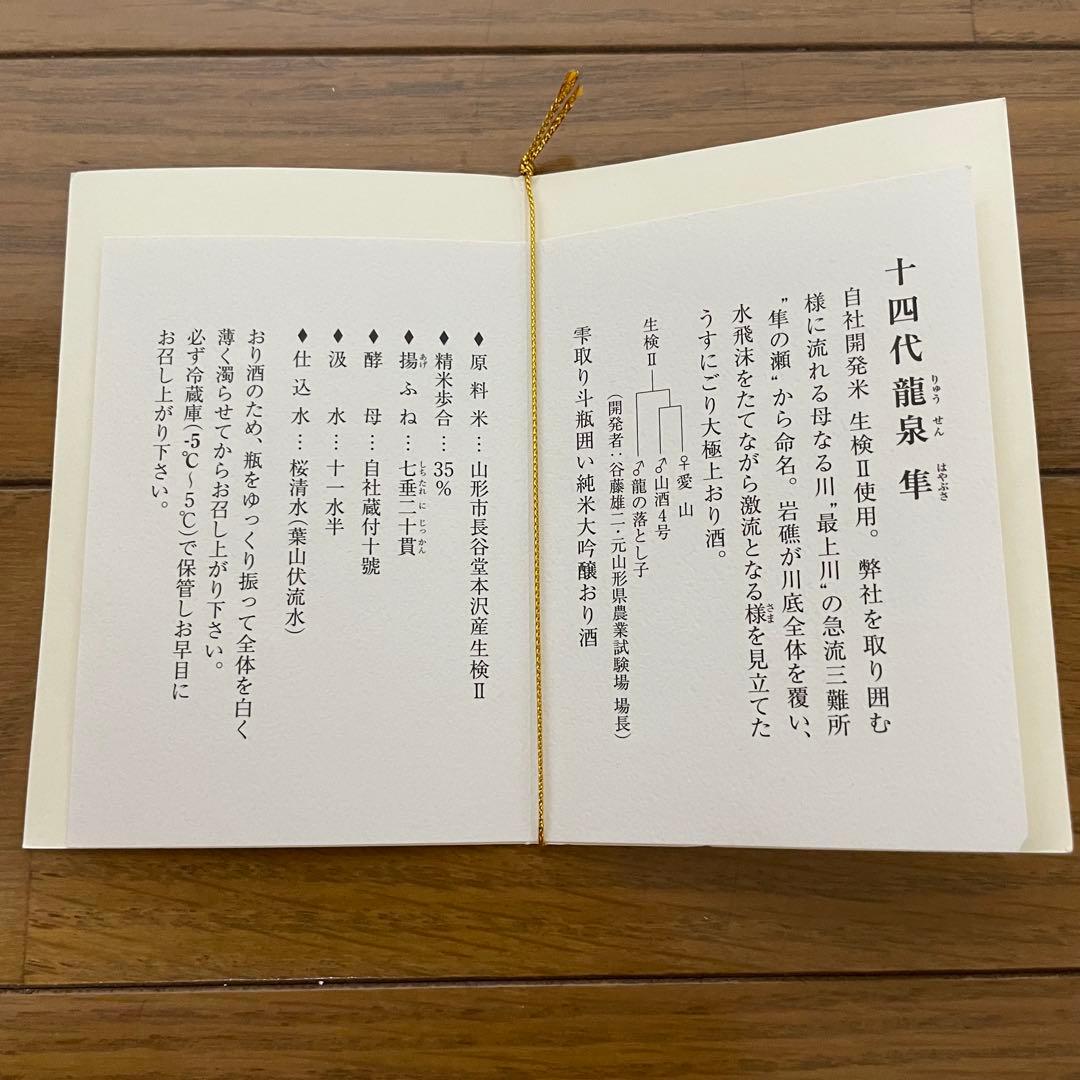 十四代龍泉 隼
りゅう せん はやぶさ
自社開発米 生検Ⅱ使用。 弊社を取り囲む
様に流れる母なる川”最上川“の急流三難所
”隼の瀬“から命名。岩礁が川底全体を覆い、
水飛沫をたてながら激流となる様を見立てた
さま
うすにごり大極上おり酒。
生検Ⅱ
♀愛山
♂山酒4号
♂龍の落とし子
(開発者:谷藤雄二・元山形県農業試験場 場長)
雫取り斗瓶囲い純米大吟醸おり酒
♦原料米…山形市長谷堂本沢産生検Ⅱ
♦精米歩合…35%
♦揚ふね…七垂二十貫
あげ しちたれ に じっかん
♦酵母…自社蔵付十號
♦汲水…十一水半
♦仕込水…桜清水(葉山伏流水)
おり酒のため、瓶をゆっくり振って全体を白く
薄く濁らせてからお召し上がり下さい。
必ず冷蔵庫(-5℃~5℃)で保管しお早目に
お召し上がり下さい。